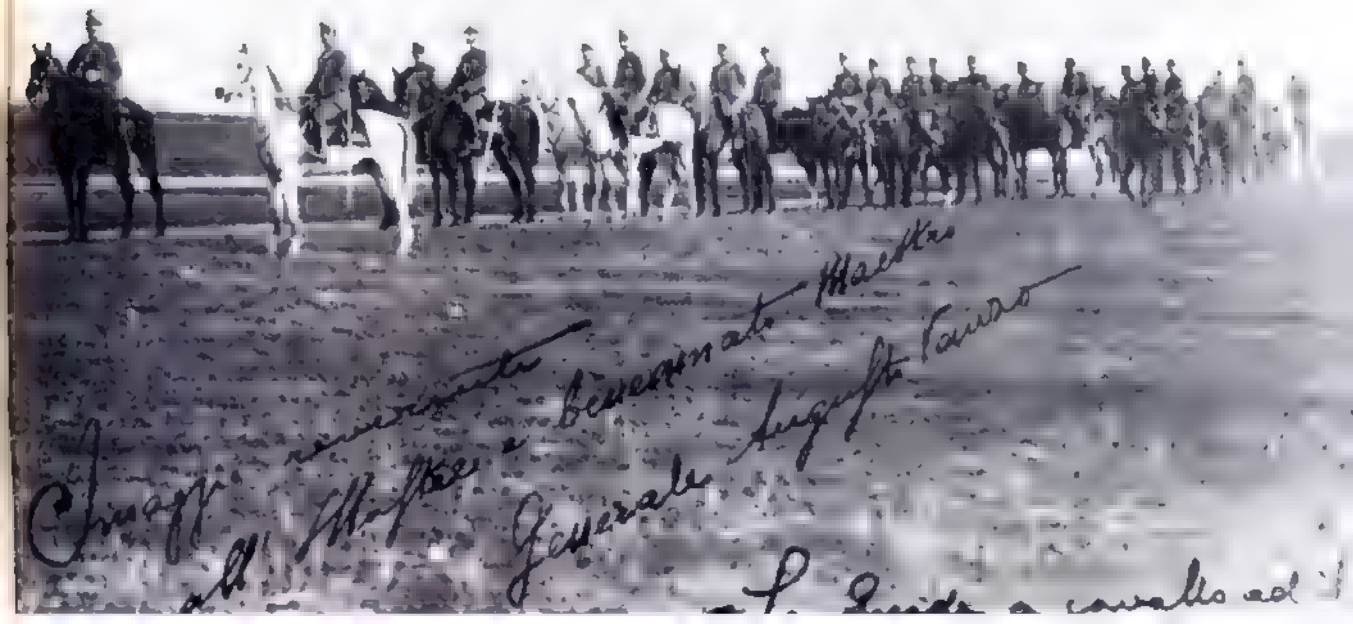 Omaggio reverente
all' Illustre e benemerito Maestro
Generale Augusto
Guide a cavallo ad